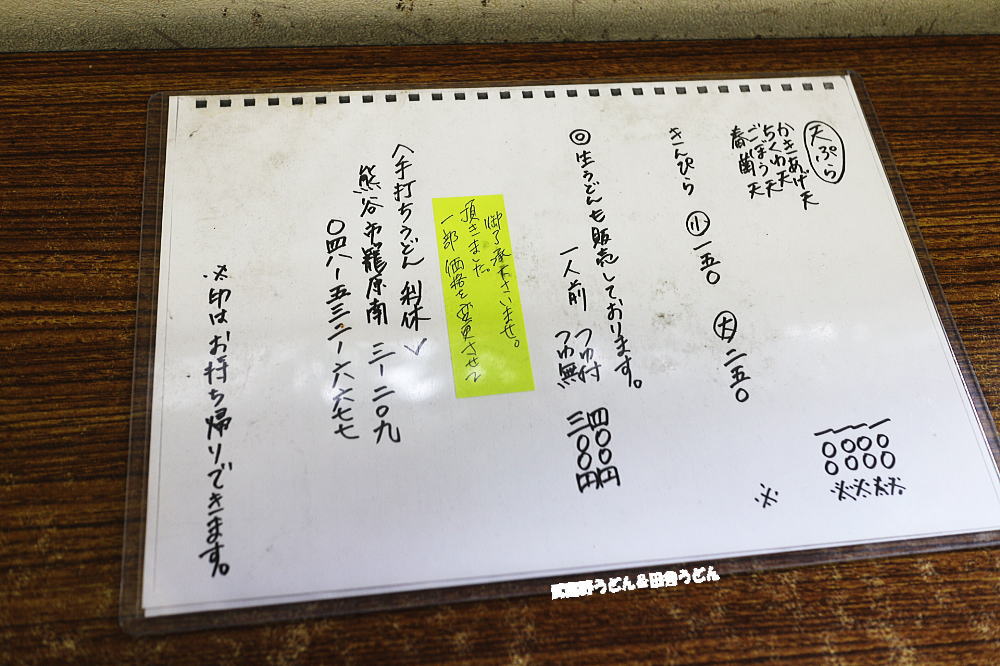 天ぷら
かきあげ天 一〇〇 ※
ちくわ天 一〇〇 ※
ごぼう天 一〇〇 ※
春菊天 一〇〇 ※
きんぴら ㊙小 一五〇 大 二五〇 ※
◎生うどんも販売しております。
一人前 つゆ付 四〇〇円
つゆ無 三〇〇円
一部価格を変更させて
頂きました。
御了承下さいませ。
〈手打うどん 利休〉
熊谷市籠原南 三ー二〇九
〇四八ー五三二ー六六七七
※印はお持ち帰りできます。
武蔵野うどん&田舎うどん